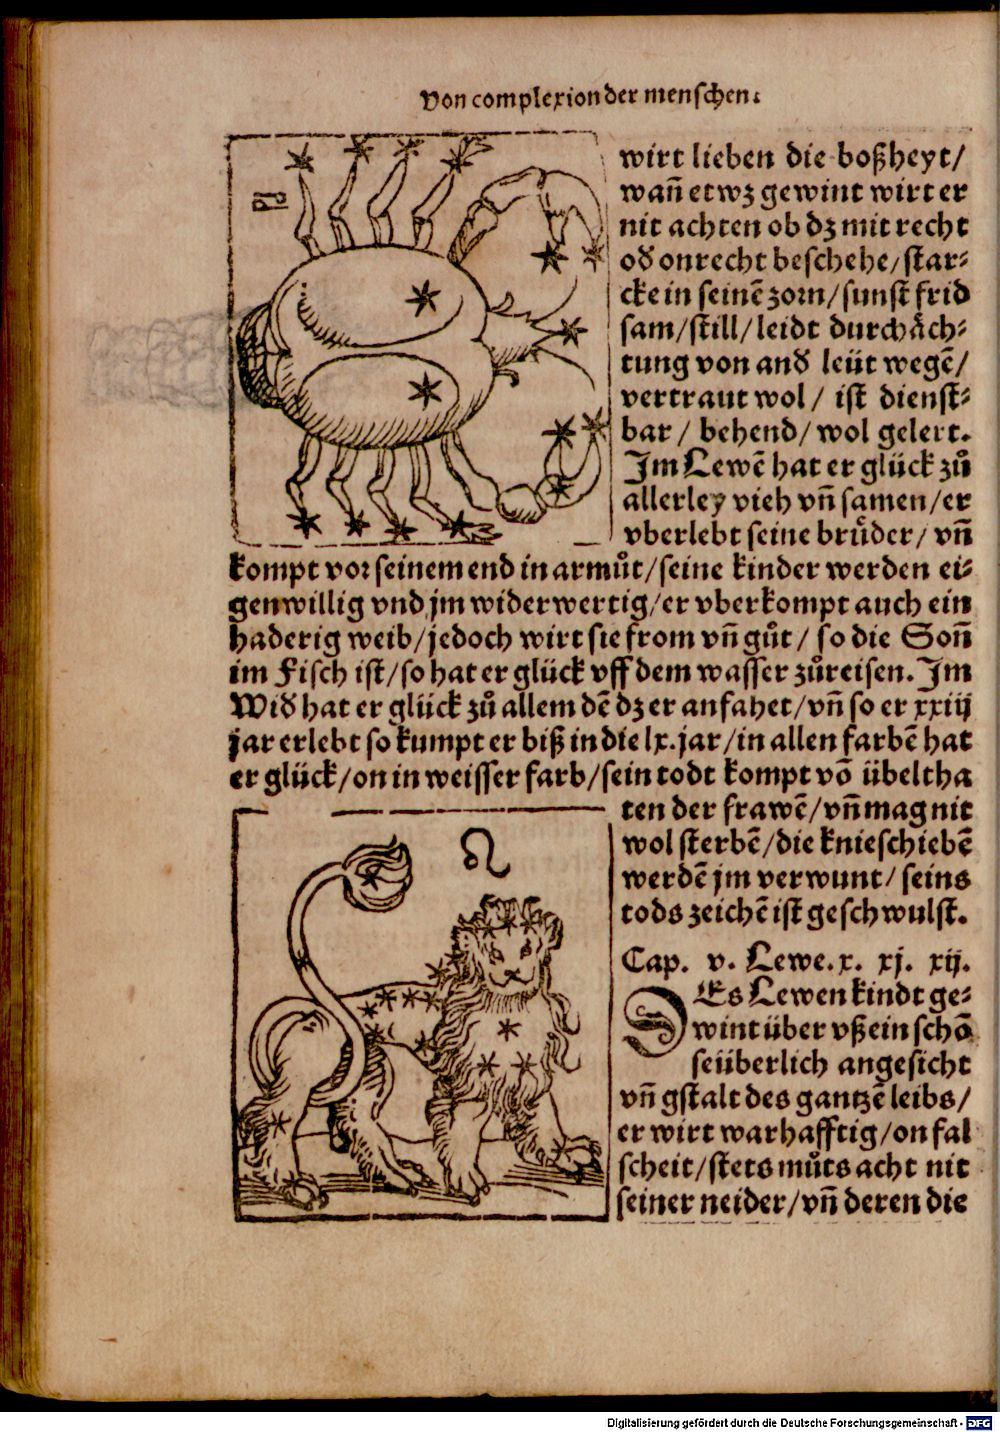 Von complexion der menschen.
wirt lieben die boßheyt/
wañ etwz gewint wirt er
nit achten ob dz mit recht
od̕ onrecht beschehe/ star⸗
cke in seinē zorn/ sunst frid
sam/ still/ leidt durchåch⸗
tung von and̕ leüt wegē/
vertraut wol/ ist dienst⸗
bar/ behend/ wol gelert.
Jm Lewē hat er glück zů
allerley vieh vñ samen/ er
vberlebt seine brůder/ vñ
kompt vor seinem end in armůt/ seine kinder werden ei⸗
genwillig vnd jm widerwertig/ er vberkompt auch ein
haderig weib/ jedoch wirt sie from vñ gůt/ so die Soñ
im Fisch ist/ so hat er glück vff dem wasser zůreisen. Jm
Wid̕ hat er glück zů allem dē dz er anfahet/ vñ so er xxiij
jar erlebt so kumpt er biß in die lx. jar/ in allen farbē hat
er glück/ on in weisser farb/ sein todt kompt vō übeltha
ten der frawē/ vñ mag nit
wol sterbē/ die knieschiebē
werdē jm verwunt/ seins
tods zeichē ist geschwulst.
Cap. v. Lewe. x. xj. xij.
DEs Lewen kindt ge⸗
wint über vß ein schō
seüberlich angesicht
vñ gstalt des gantzē leibs/
er wirt warhafftig/ on fal
scheit/ stets můts acht nit
seiner neider/ vñ deren die
Digitalisierung gefördert durch die Deutsche Forschungsgemeinschaft - DFG